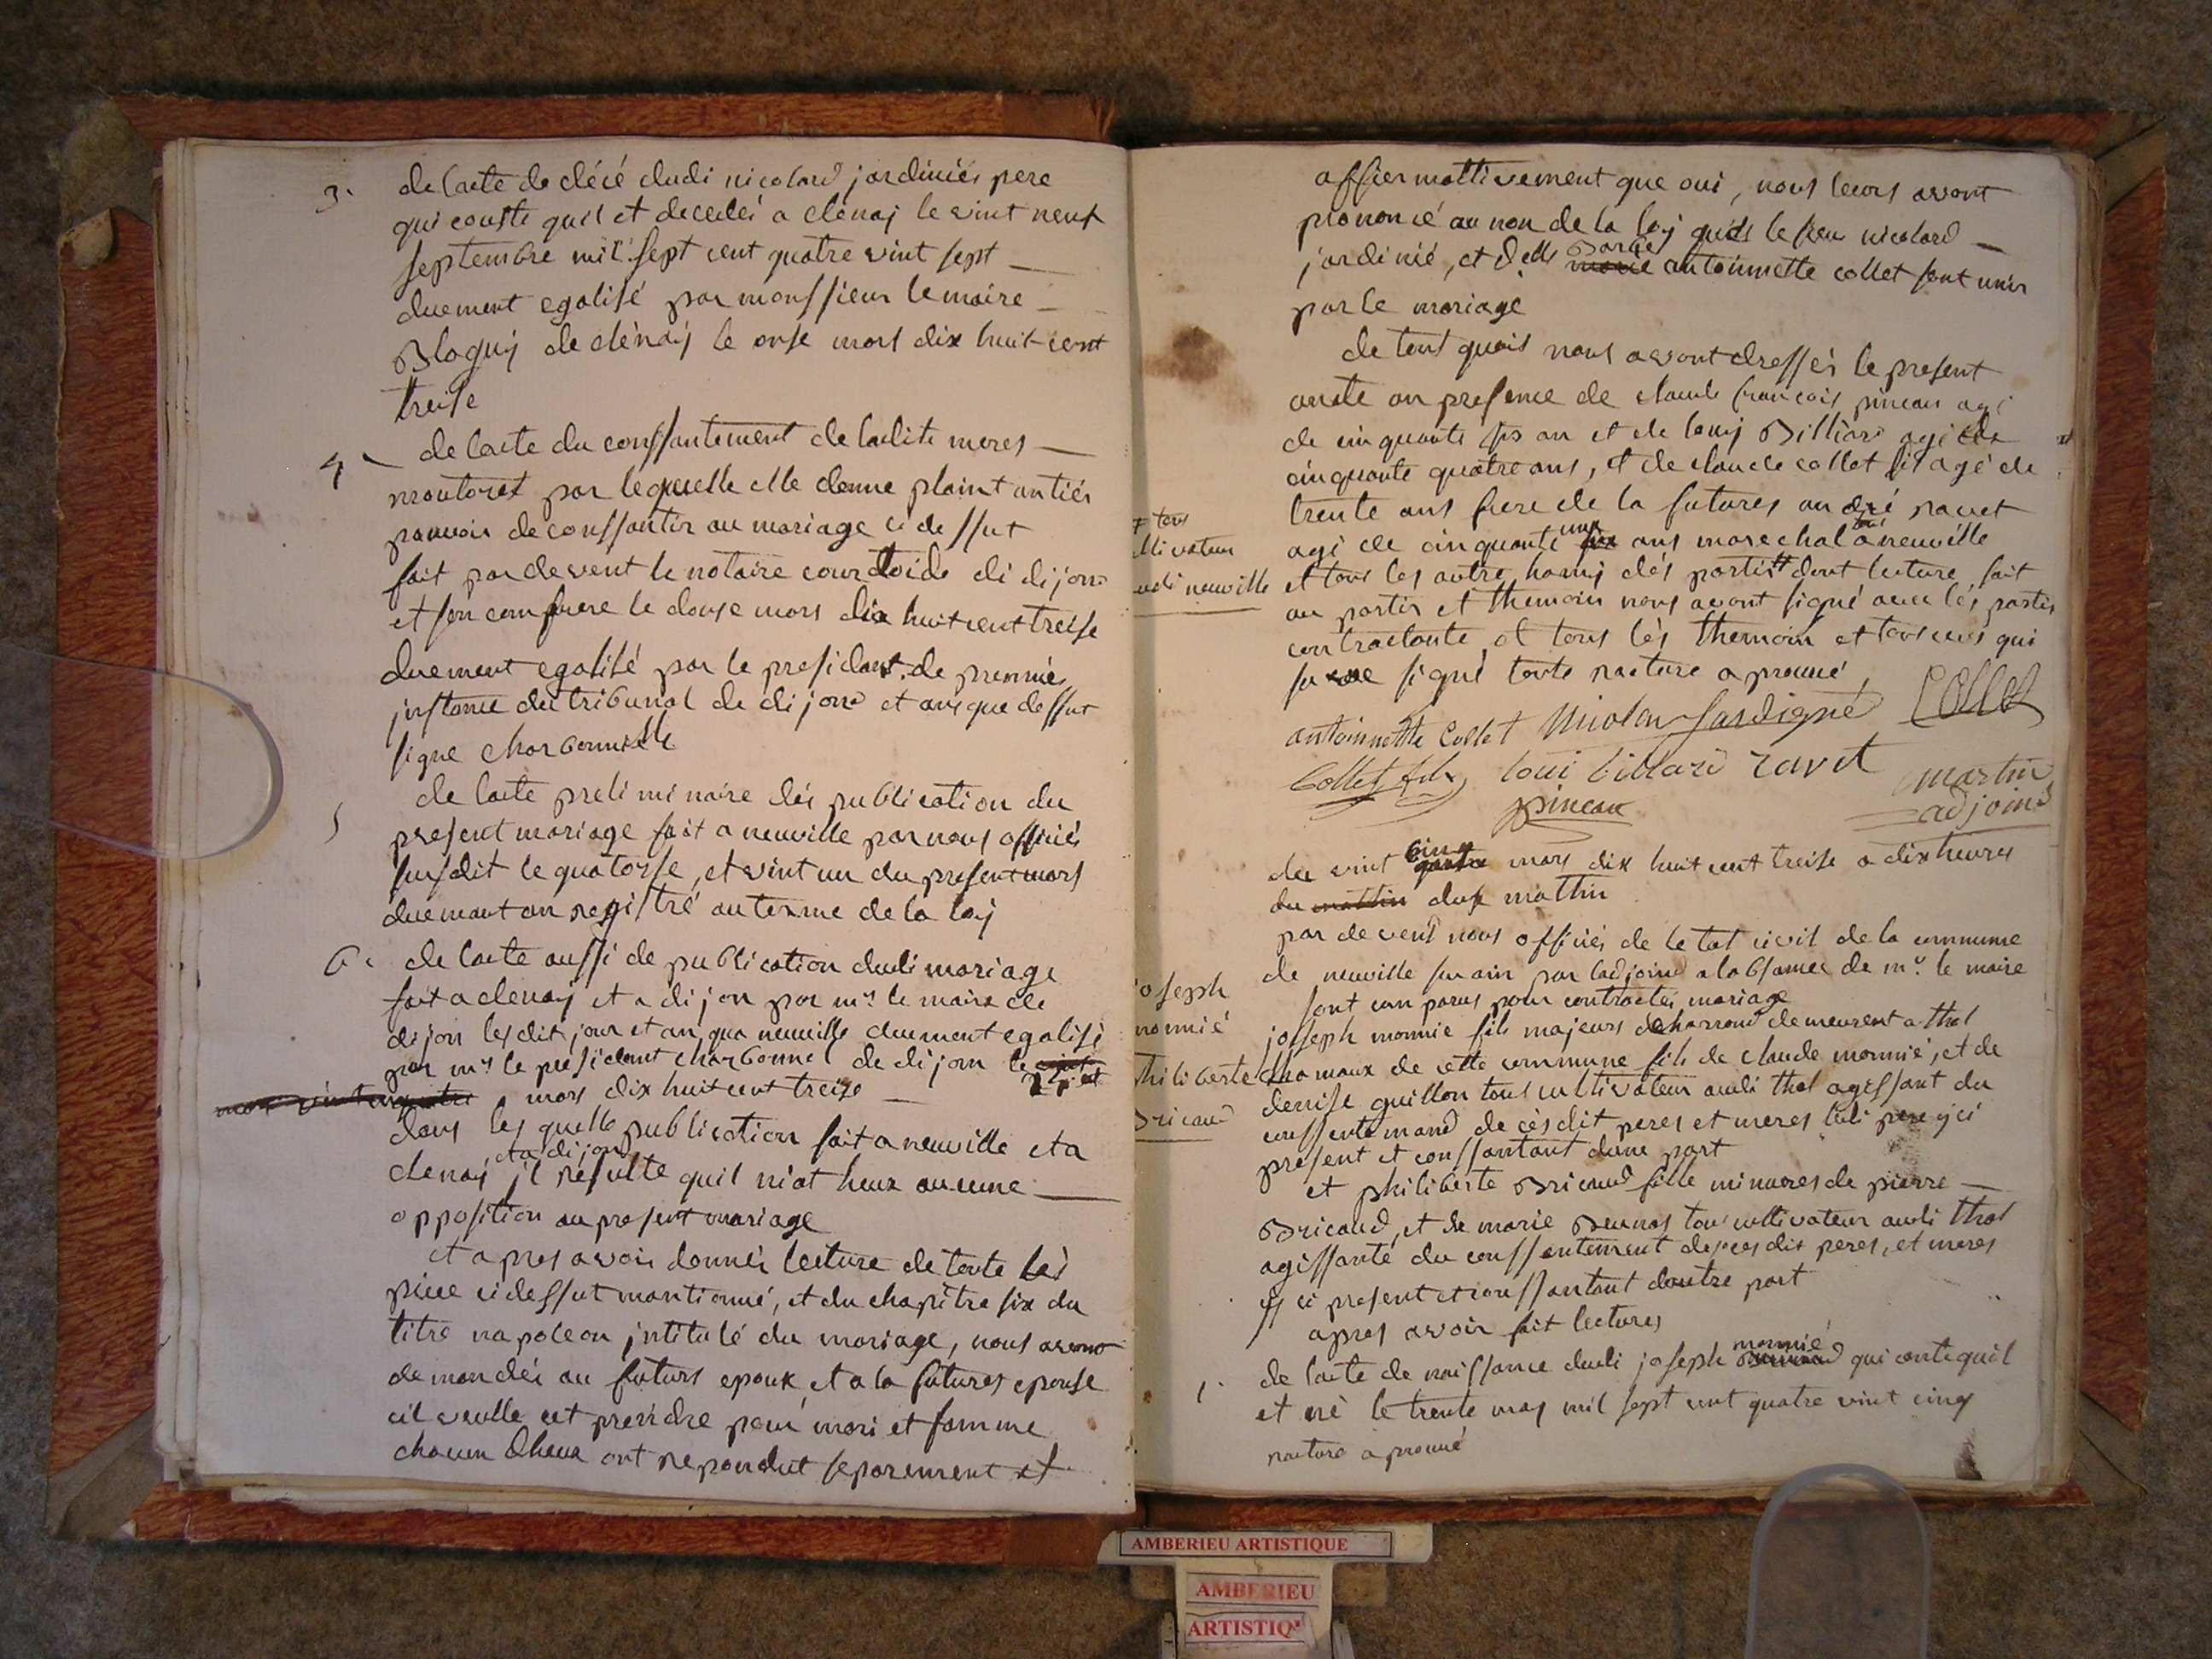 3. de lacte de décé dudi nicolard jardiniés pere
qui conste quil et decedéé a clenaj le vint neuf
septembre mil sept cent quatre vint sept
duement egalisé par monssieur le maire
Bloguy de clénaÿ le onse mars dix huit cent
treise
4 de lacte du conssantement de ladite meres
moutoret par lequelle elle donne plaint antiér
pouvoir de conssantir au mariage ci dessut
fait pardevent le notaire courtoide di dijon
et son confrere le douse mars dix huit cent treise
duement egalisé par le presidant de premié
jnstance du tribunal de dijon et ansi que dessut
signe charbonnelle
5 de lacte preliminaire dés publication du
present mariage fait a neuville par nous officiés
susdit le quatorse, et vint un du present mars
duemant anregistré au terme de la loj
6. de lacte aussi de publication dudi mariage
fait a clenaj et a dijon par mr le maire de
dijon lesdit jour et an qua neuville duement egalisé
par mr le presidant charbonnel de dijon le
mars dix huit cent treize
dans les quelle publication fait a neuville et a
clenaj et a dijon jl resulte quil niat heux aucune
opposition au present mariage
et apres avoir donnér lecture de toute les
piece cidessut mantionné, et du chapitre six du
titre napoleon jntitulé du mariage, nous avons
demandéé au futurs epoux et a la futures epouse
cil veulle cet prendre pour mari et famme
chacun dheux ont repondut séparement et
affiermattivement que oui, nous leurs avont
prononcé au non de la loj quils le sieur nicolard
jardinié, et delle marie antoinnette collet sont unir
par le mariage
de tout quois nous avont dressér le present
ancte an presence de claude francois pineau agé
de cinquante six an et de louij Billiard agé de
cinquante quatre ans, et de claude collet fis agé de
trente ans frere de la futures andré ravet
agé de cinquante un ans marechal a neuville
et tous les autre hamij dés partis dont lecture fait
au partis et themoin nous avont signé avec lés partis
contractante et tous lés themoin et tous ceus qui
su signé toute rarture aprouvé
≠ tous
ltivateur
udi neuville
antoinnette Collet Nicolar Jardigné Collet
Collet fils loui billard ravet martin
pineau adjoind
du vint cinq mars dix huit cent treise a dix heures
du mattin dusx matin
par devend nous officiés de letat civil de la commune
de neuville sur ain par ladjoind a labsance de mr le maire
sont comparus pour contractér mariage
joseph monnie fils majeurs demeurent a thol
chamaux de cette commune fils de claude monnié, et de
denise guillon tous cultivateur audi thol agissant du
conssentemand de cés dit peres et meres ledi pere ici
present et conssantant dune part
et philiberte Bricaud fille mineures de pierre
Bricaud, et de marie tous cultivateur audi thol
agissante du conssentement de ces dit peres, et meres
ij ci present et conssantant dautre part
apres avoir fait lectures
1. de lacte de naissance dudi joseph monnié qui conte quil
et né le trente mas mil sept cent quatre vint cinq
rarture aprouvé
joseph
monnié
philiberte
Bricaud
AMBERIEU ARTISTIQUE
AMBERIEU
ARTISTIQ